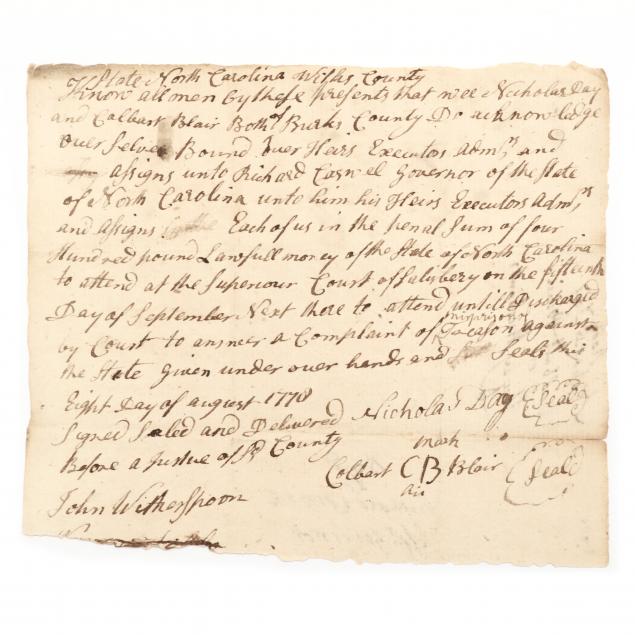 State North Carolina Wilks County
Know all men by these presents that wee Nicholas Day
and Colbart Blair Both of Burks County Do acknowledge
over selves Bound over Heirs Executors Admrs and
assigns unto Richard Caswel Governor of the State
of North Carolina unto him his Heirs Executors Admrs
and assigns Each of us in the penal Sum of four
Hundred pound Lawfull money of the State of North Carolina
to attend at the Superiour Court of Salsbery on the fifteenth
Day of September Next there to attend untill Discharged
by Court to answer a Complaint of misprison Treason against
the State Given under over hands and Seals this
Eight Day of august 1778
Signed Saled and Delivered Nicholas Day Seal
Before a Justue of Sd County mark
Colbart CB Blair Seald
his
John Witherspoon